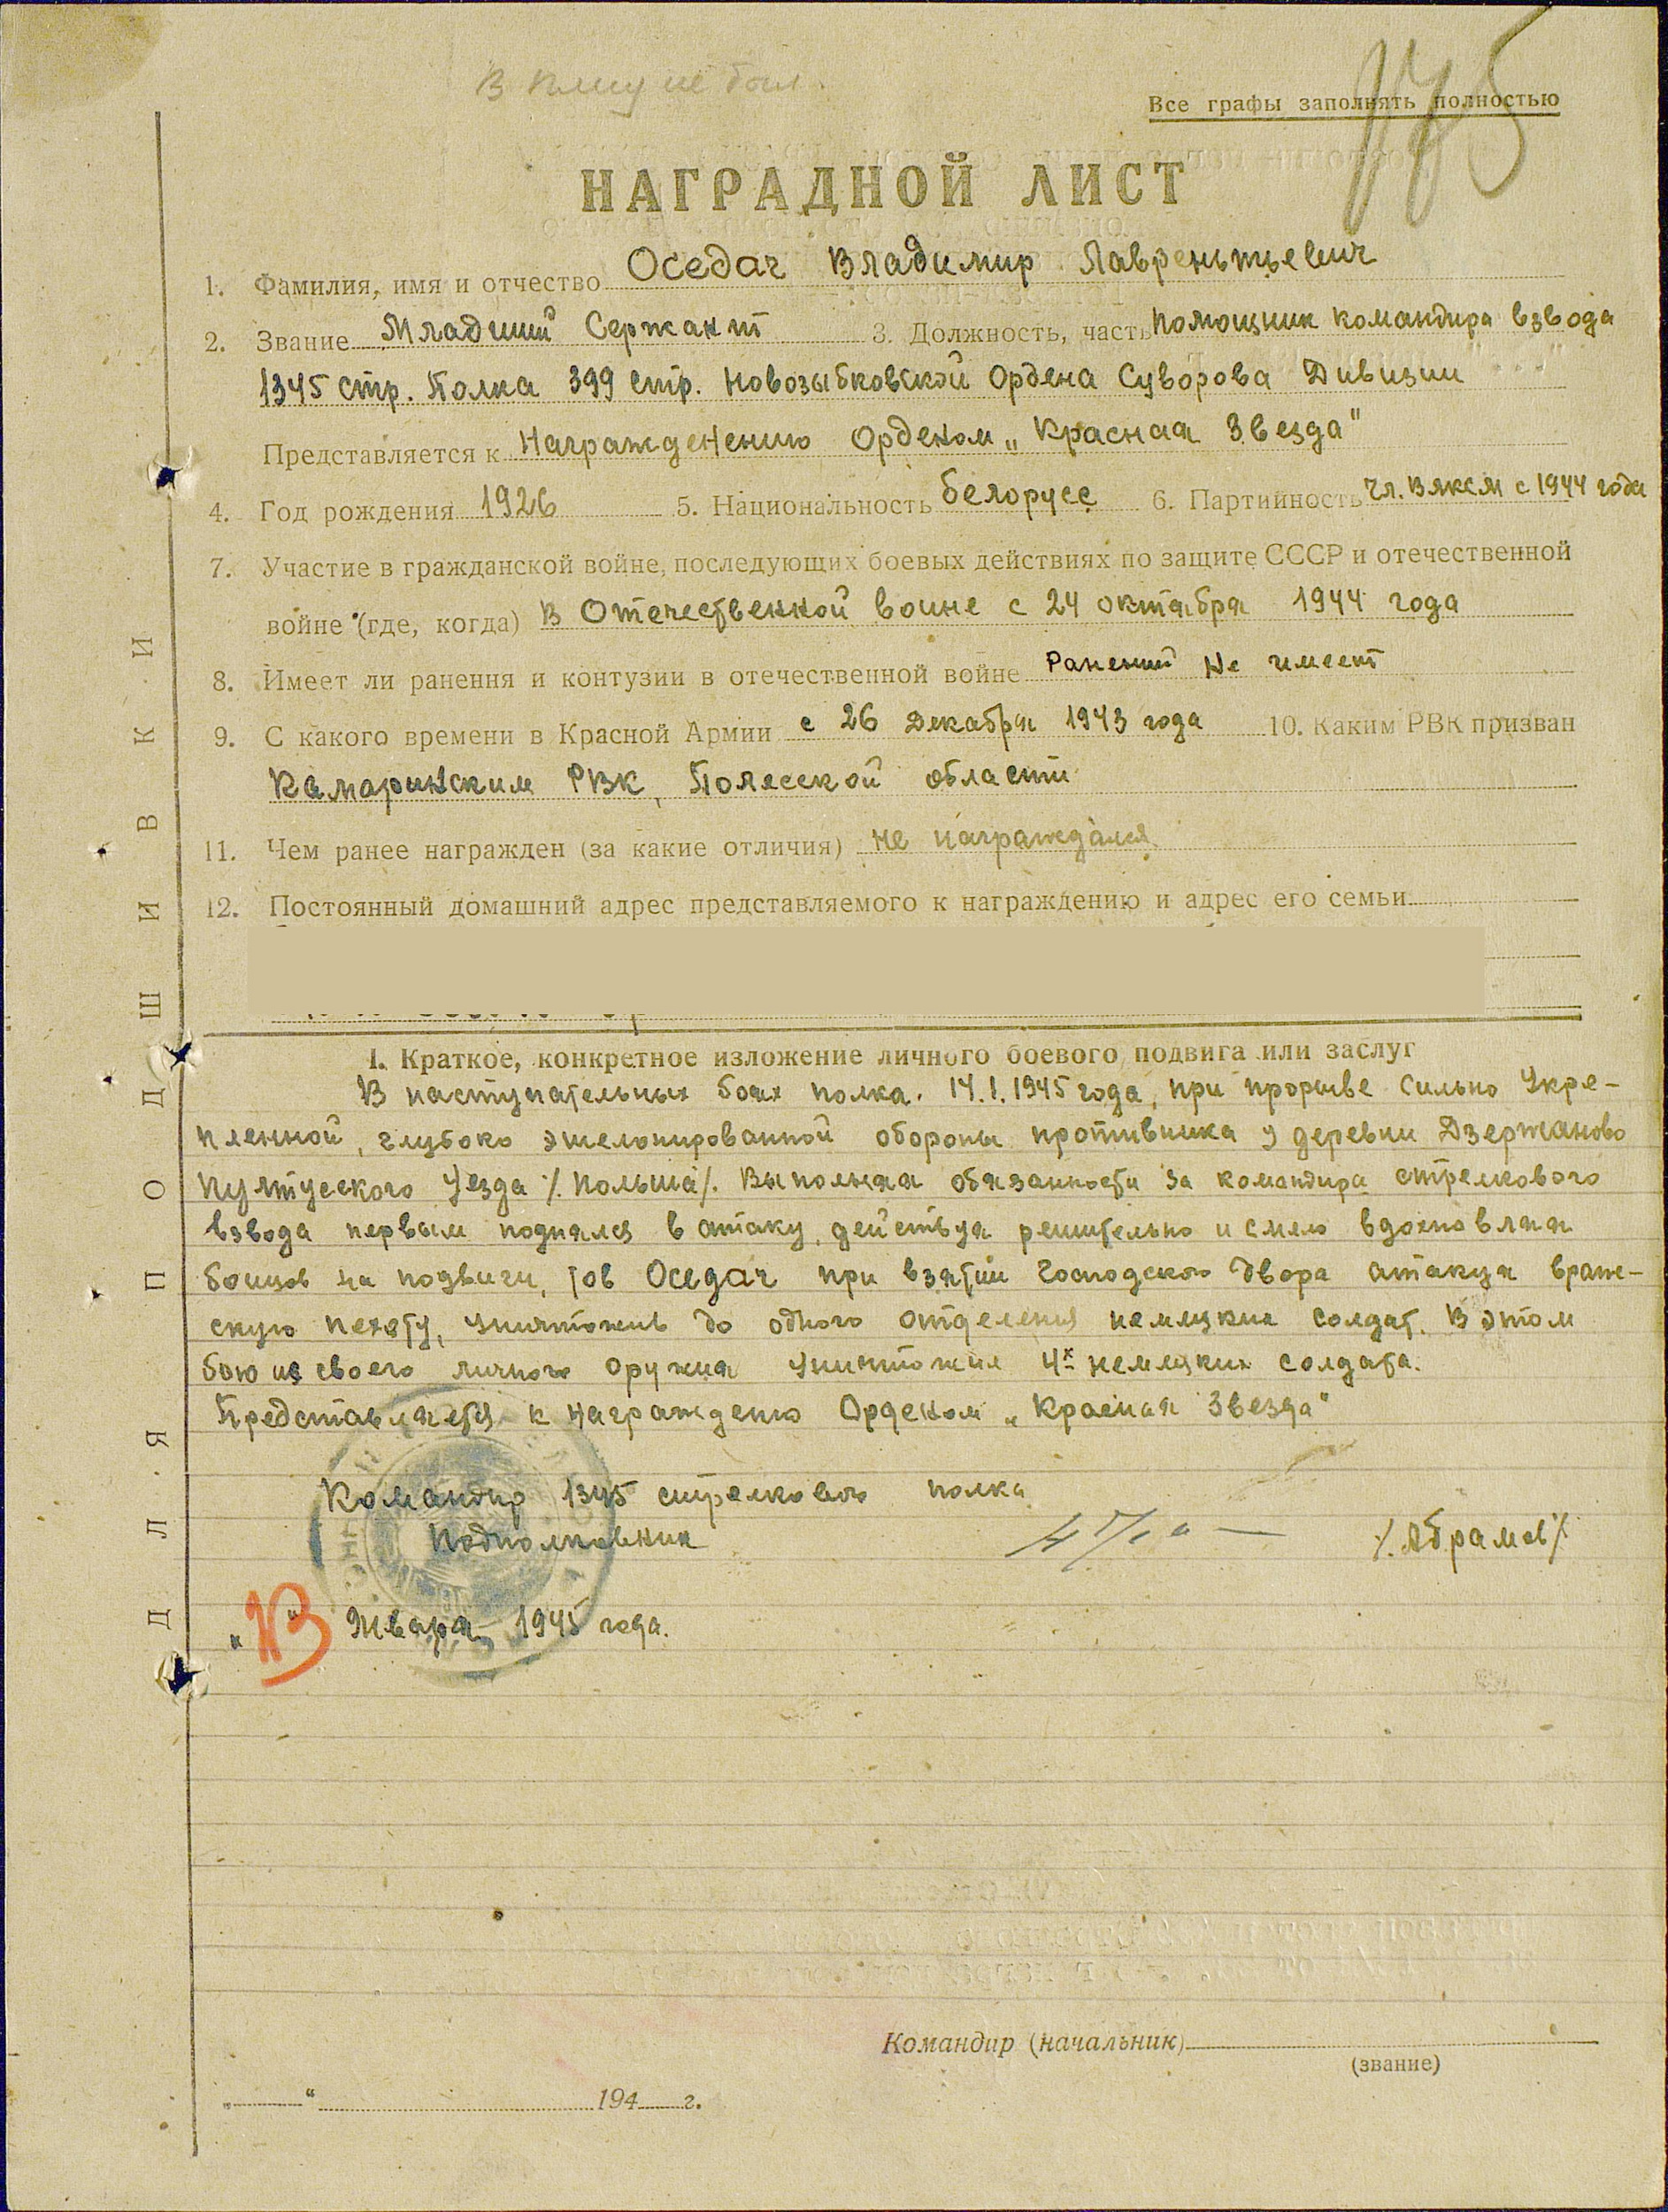 В плену не был.
175
Все графы заполнять полностью
НАГРАДНОЙ ЛИСТ
1. Фамилия, имя и отчество Оседач Владимир Лаврентьевич
2. Звание Младший Сержант 3. Должность, часть помощник командира взвода
1345 стр. Полка 399 стр. Новозыбковской Ордена Суворова Дивизии
Представляется к Награжденению Орденом „Красная Звезда"
4. Год рождения 1926 5. Национальность белорусс 6. Партийность чл. ВЛКСМ с 1944 года
7. Участие в гражданской войне, последующих боевых действиях по защите СССР и отечественной
войне (где, когда) В Отечественной воине с 24 октября 1944 года
8. Имеет ли ранения и контузии в отечественной войне Ранений не имеет
9. С какого времени в Красной Армии с 26 Декабря 1943 года 10. Каким РВК призван
Камаринским РВК, Полесской области
11. Чем ранее награжден (за какие отличия) не награждался.
12. Постоянный домашний адрес представляемого к награждению и адрес его семьи
I. Краткое, конкретное изложение личного боевого подвига или заслуг
В наступательных боях полка. 14.1.1945 года, при прорыве сильно Укре-
пленной, глубоко эшелонированной обороны противника у деревни Дзержаново
Пултусского Уезда /. Польша/. Выполняя обязанности за командира стрелкового
взвода первым поднялся в атаку, действуя решительно и смело вдохновляя
бойцов на подвиги, тов Оседач при взятии Господского двора атакуя враже-
скую пехоту, уничтожив до одного отделения немецких солдат. В этом
бою из своего личного оружия уничтожил 4х немецких солдата.
Представляется к награждению Орденом „Красная Звезда"
Командир 1345 стрелкового полка
Подполковник /. Абрамов/
„ " Января 1945 года.
Командир (начальник)
(звание)
„ “ 194 г.
ДЛЯ ПОДШИВКИ